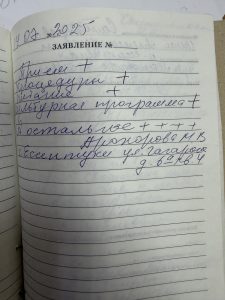 07.2025
ЗАЯВЛЕНИЕ №
Приём +
Процедуры +
Питание +
Культурная программа +
А остальное + + + +
Прохорова М В
Ессентуки ул Гагарина
д. 6ª кв 4